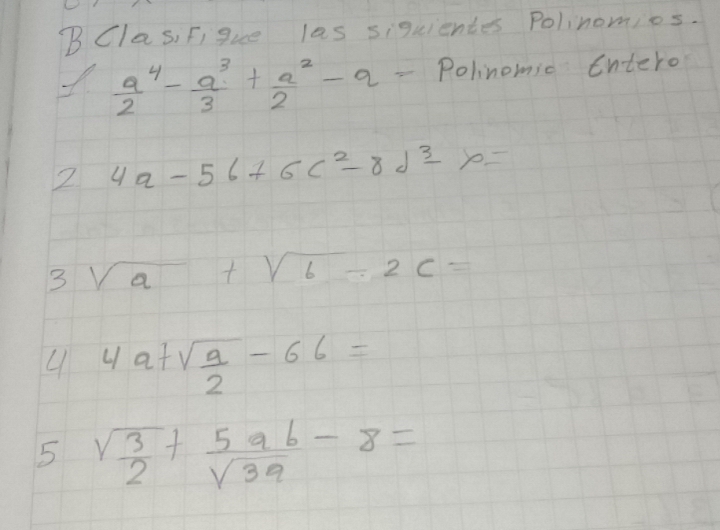 B Clasifique las siguientes Polinomios.
1 a⁴/2 - a³/3 + a²/2 - a = Polinomio Entero
2 4a - 5b + 6c² - 8d³ - x =
3 √a + √b - 2c =
4 4a + √a/2 - 6b =
5 √3/2 + 5ab/√3a - 8 =